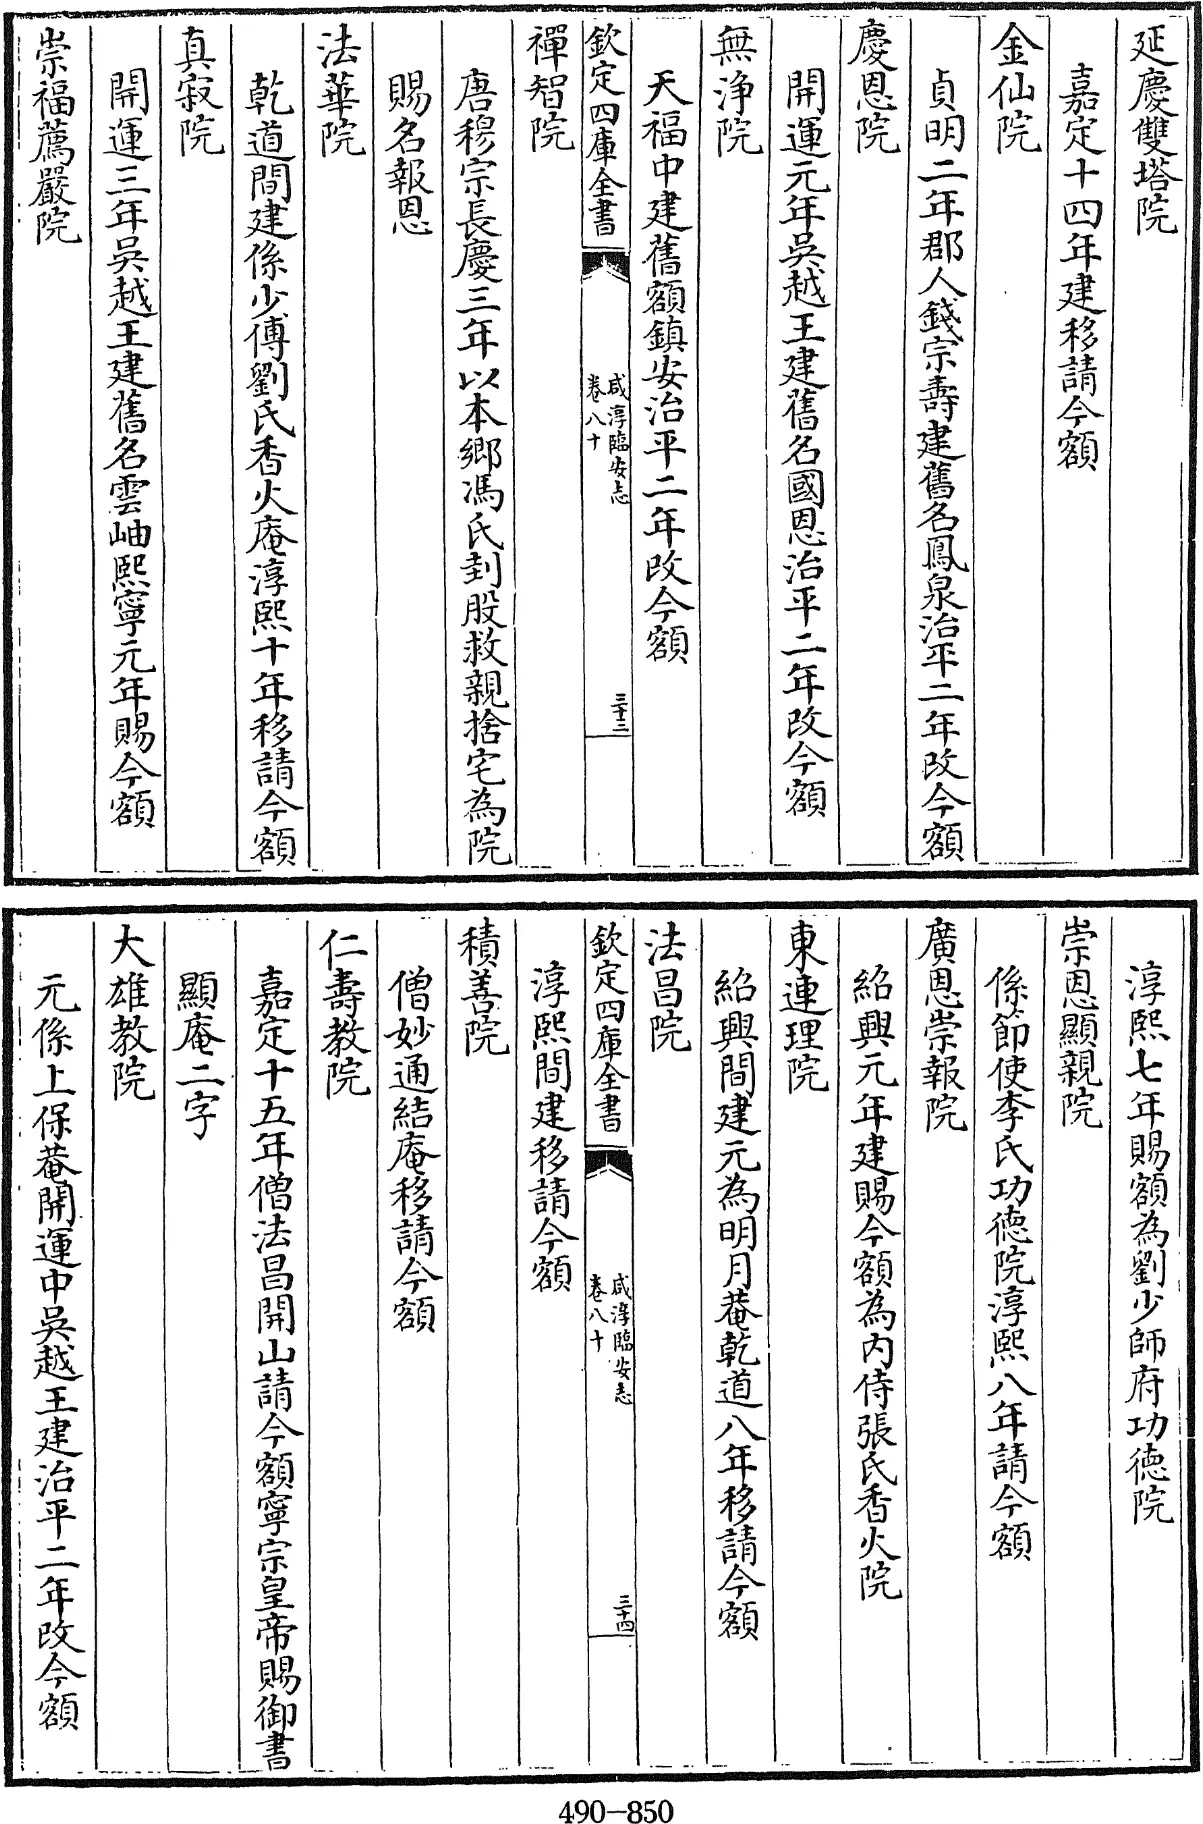 延慶雙塔院
嘉定十四年建移請今額
金仙院
貞明二年郡人錢宗壽建舊名鳳泉治平二年改今額
慶恩院
開運元年吳越王建舊名國恩治平二年改今額
無淨院
天福中建舊額鎮安治平二年改今額
欽定四庫全書
咸淳臨安志
卷八十
三十三
禪智院
唐穆宗長慶三年以本鄉馮氏刲股救親捨宅為院
賜名報恩
法華院
乾道間建係少傅劉氏香火庵淳熙十年移請今額
真寂院
開運三年吳越王建舊名雲岫熙寧元年賜今額
崇福薦嚴院
淳熙七年賜額為劉少師府功德院
崇恩顯親院
係節使李氏功德院淳熙八年請今額
廣恩崇報院
紹興元年建賜今額為內侍張氏香火院
東連理院
紹興間建元為明月菴乾道八年移請今額
法昌院
欽定四庫全書
咸淳臨安志
卷八十
三十四
淳熙間建移請今額
積善院
僧妙通結庵移請今額
仁壽教院
嘉定十五年僧法昌開山請今額寧宗皇帝賜御書
顯庵二字
大雄教院
元係上保菴開運中吳越王建治平二年改今額
490-850